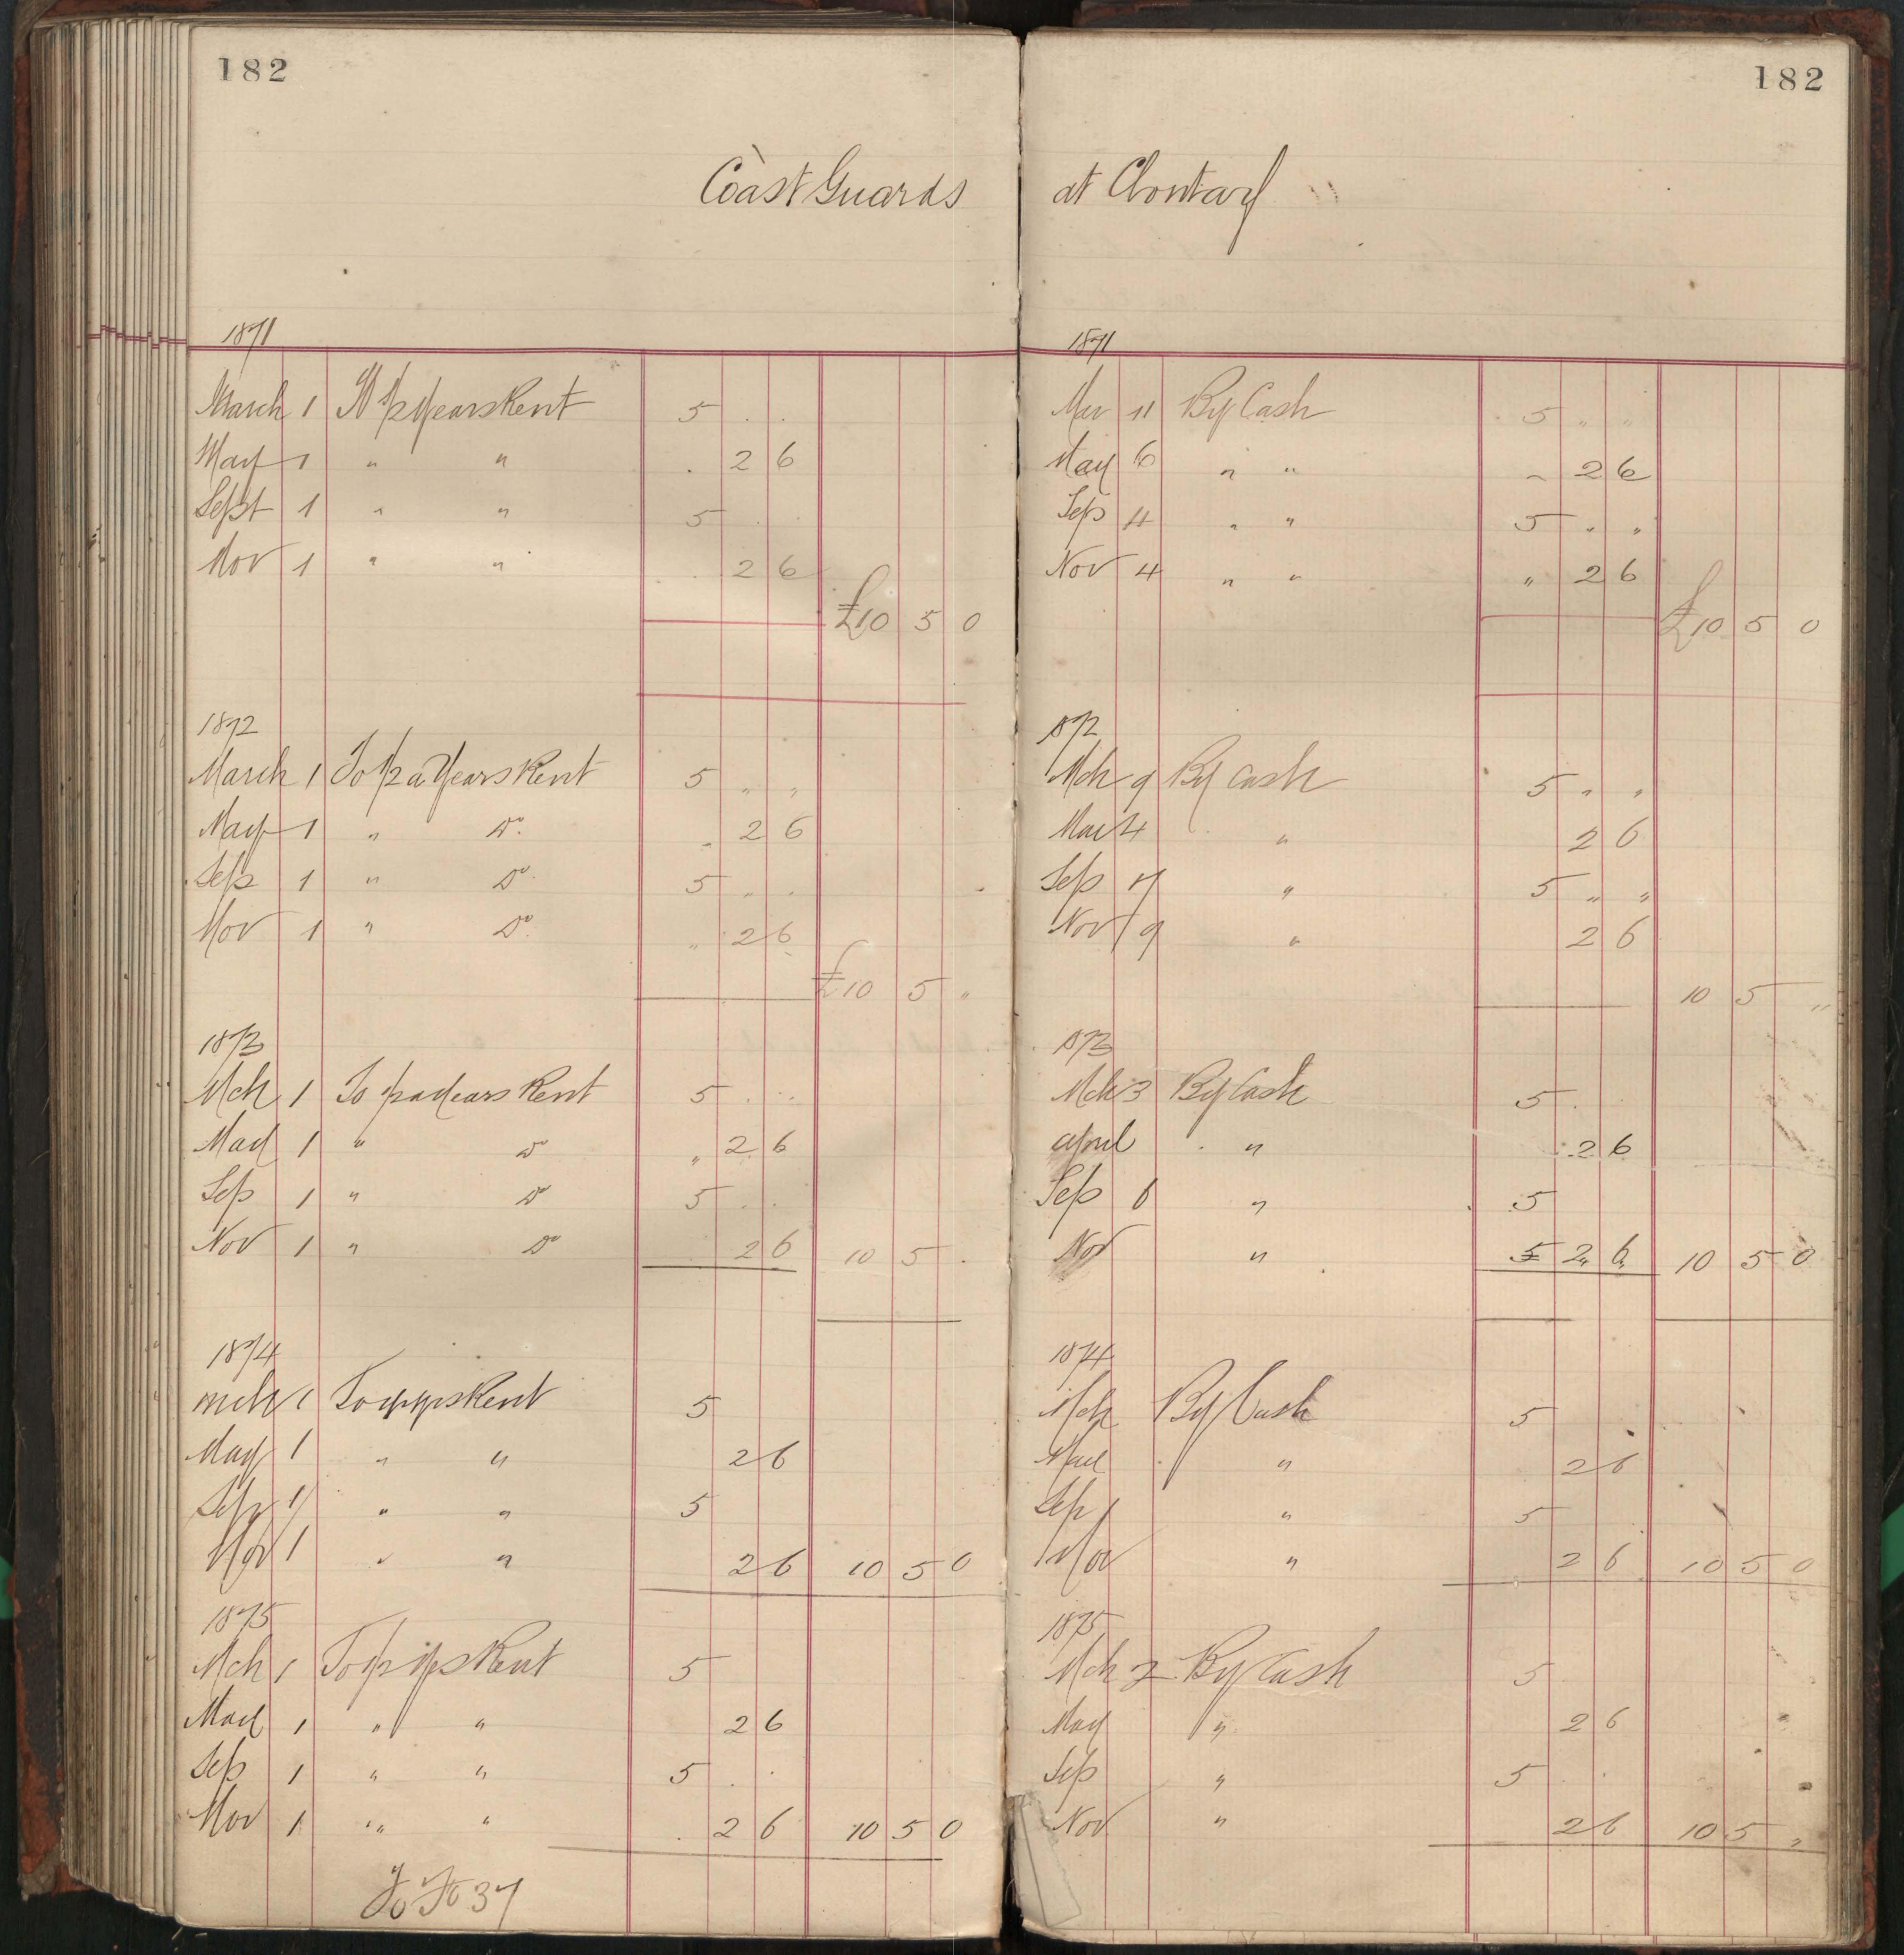 182
Coast Guards
1871
March 1 To 1/2 Years Rent 5 . .
May 1 " " . 2 6
Sept 1 " " 5 . .
Nov 1 " " . 2 6
£10 5 0
1872
March 1 To 1/2 a Years Rent 5 " "
May 1 " Do. " 2 6
Sep 1 " Do. 5 " .
Nov 1 " Do. " 2 6
£10 5 "
1873
Mch 1 To 1/2 a Years Rent 5 . .
May 1 " Do " 2 6
Sep 1 " Do 5 . .
Nov 1 " Do 2 6 10 5 .
1874
Mch 1 To Rent 5
May 1 " " 2 6
Sep 1 " " 5
Nov 1 " " 2 6 10 5 0
1875
Mch 1 To 1/2 yrs Rent 5
May 1 " " 2 6
Sep 1 " " 5 . .
Nov 1 " " . 2 6 10 5 0
To Fo 37
182
at Clontarf
1871
Mar 11 By Cash 5 " "
May 6 " " " 2 6
Sep 4 " " 5 " "
Nov 4 " " " 2 6
£10 5 0
1872
Mch 9 By Cash 5 " "
May 4 " 2 6
Sep 17 " 5 " "
Nov 9 " 2 6
10 5 "
1873
Mch 3 By Cash 5 .
April " 2 6
Sep 6 " 5
Nov " 2 6 10 5 0
1874
Mch By Cash 5
May " 2 6
Sep 1 " 5
Nov " 2 6 10 5 0
1875
Mch 2 By Cash 5
May " 2 6
Sep " 5 .
Nov " 2 6 10 5 "